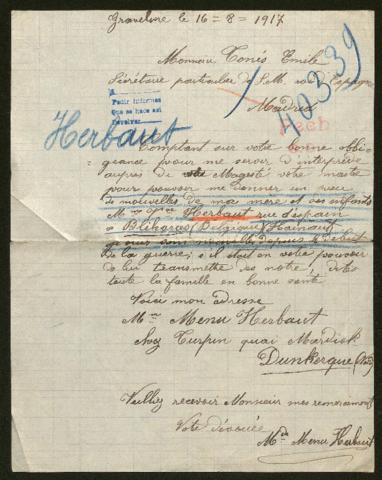 Graveline le 16-8-1917
Monsieur Tonés Emile
Sécrétaire particulier de S.M. roi d'Espagne
Madrid
40339
Pedir informes
Que se hace así
Devolver
Herbaut
Comptant sur votre bonne obli-
geance pour me servir d'interprète
auprès de Magesté votre maître
pour pouvoir me donner un peu
de nouvelles de ma mère et ses enfants
Herbaut rue d'espain
à Bléharies (Belgique) (Hainaut)
depuis le début
de la guerre; s'il était en votre pouvoir
de lui transmettre de notre
toute la famille en bonne santé
Voici mon adresse
Mme Menu Herbaut
chez Turpin quai Mardick
Dunkerque (Nord)
Veuillez recevoir Monsieur mes remerciements
Votre dévouée
Mme Menu Herbaut